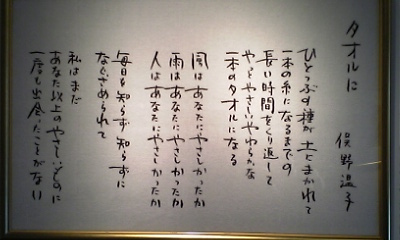 タオルに
俣野温子
ひとつぶの種が土にまかれて
一本の糸になるまでの
長い時間をくり返して
やっとやさしいやわらかな
一本のタオルになる
風はあなたにやさしかったか
雨はあなたにやさしかったか
人はあなたにやさしかったか
毎日も知らず知らずに
なぐさめられて
私はまだ
あなた以上のやさしいものに
一度も出会ったことがない